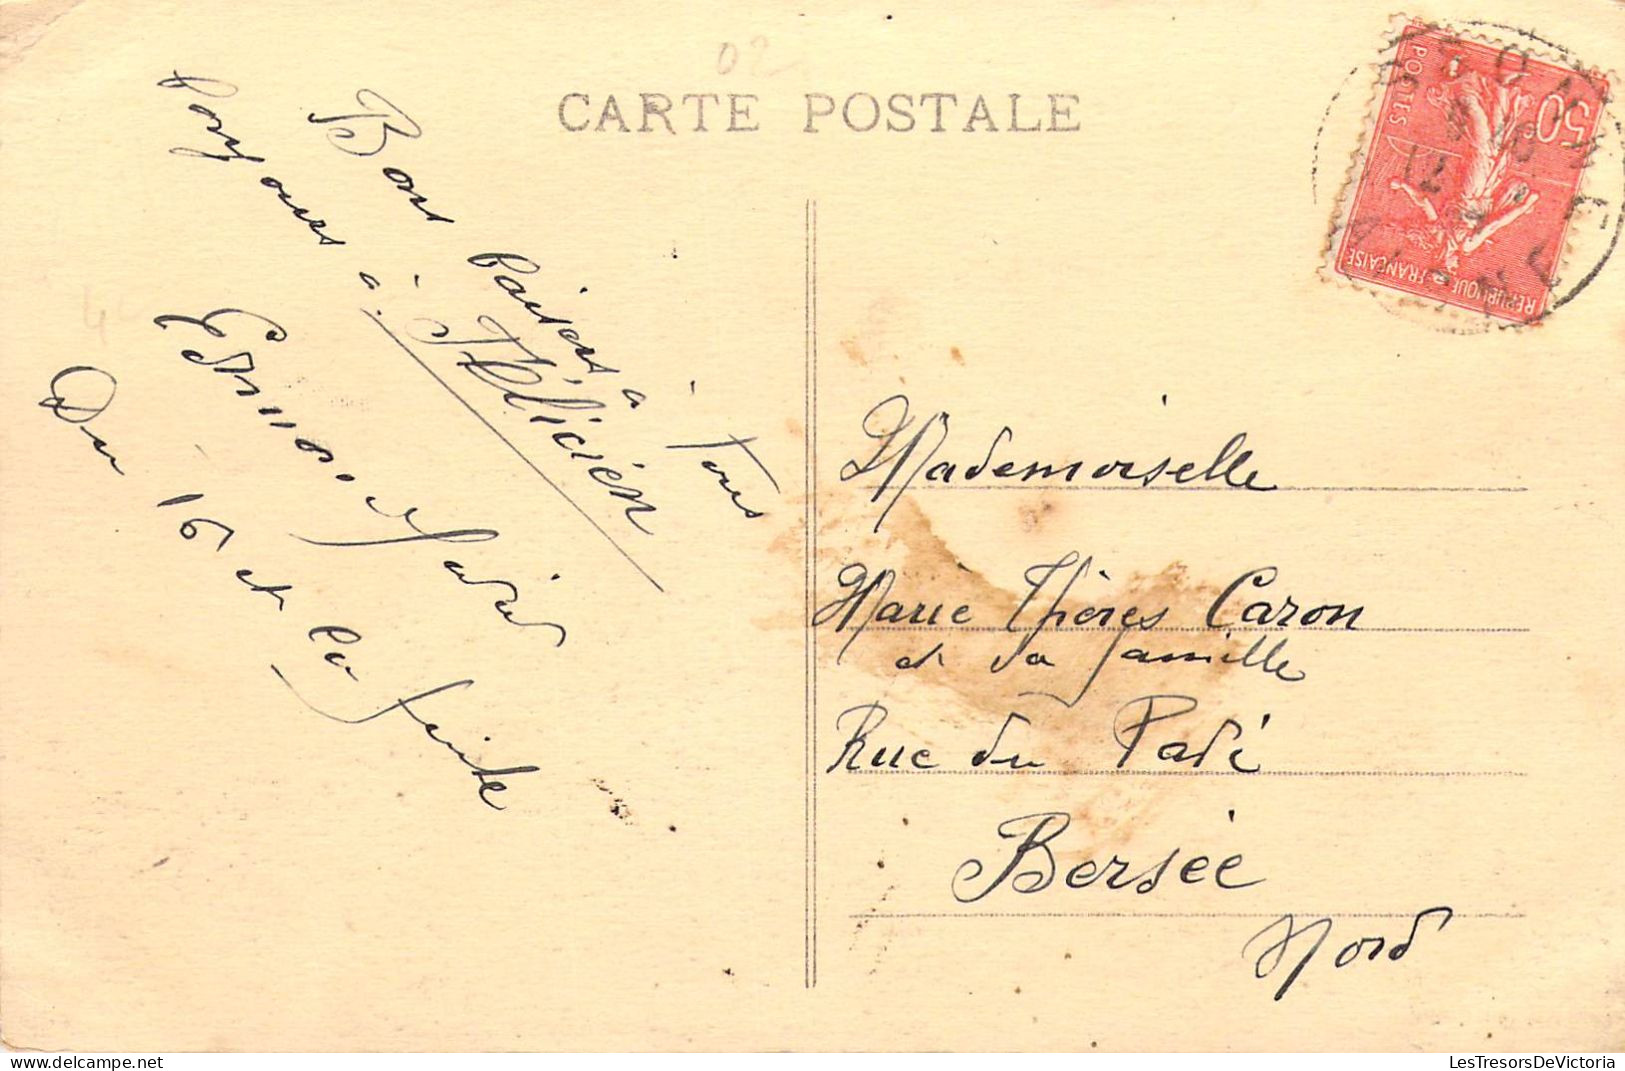 CARTE POSTALE
Bons baisers à Tous
bonjours à
Félicien
Edmond
Du 16 et la suite
50c
POSTES
REPUBLIQUE FRANÇAISE
Mademoiselle
Marie Thérès Caron
et sa famille
Rue du Padé
Bersée
Nord
LesTresorsDeVictoria